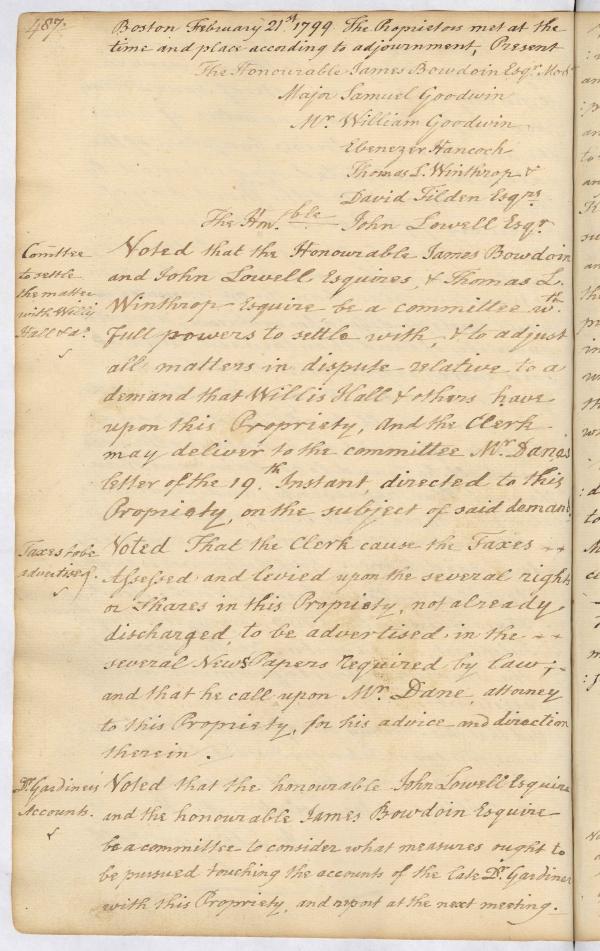 487.
Boston February 21.st 1799. The Proprietors met at the
time and place according to adjournment, Present
The Honourable James Bowdoin Esqr. Modr.
Major Samuel Goodwin
Mr. William Goodwin
Ebenezer Hancock
Thomas L. Winthrop &
David Tilden Esqrs
The Hon.ble John Lowell Esqr.
Comittee
to settle
the matter
with Willis
Hall & a.
Voted that the Honourable James Bowdoin
and John Lowell Esquires, & Thomas L.
Winthrop Esquire be a committee wth.
Full powers to settle with, & to adjust
all matters in dispute relative to a
demand that Willis Hall & others have
upon this Propriety, and the Clerk
may deliver to the committee Mr. Dane's
letter of the 19.th Instant, directed to this
Propriety, on the subject of said demand.
Taxes to be
advertised.
Voted That the Clerk cause the Taxes
Assessed and levied upon the several rights
or shares in this Propriety, not already
discharged, to be advertised in the
several News Papers required by law;
and that he call upon Mr. Dane, attorney
to this Propriety, for his advice and direction
therein.
Dr. Gardiner's
Accounts.
Voted that the honourable John Lowell Esquire
and the honourable James Bowdoin Esquire
be a committee to consider what measures ought to
be pursued touching the accounts of the late Dr. Gardiner
with this Propriety, and report at the next meeting.